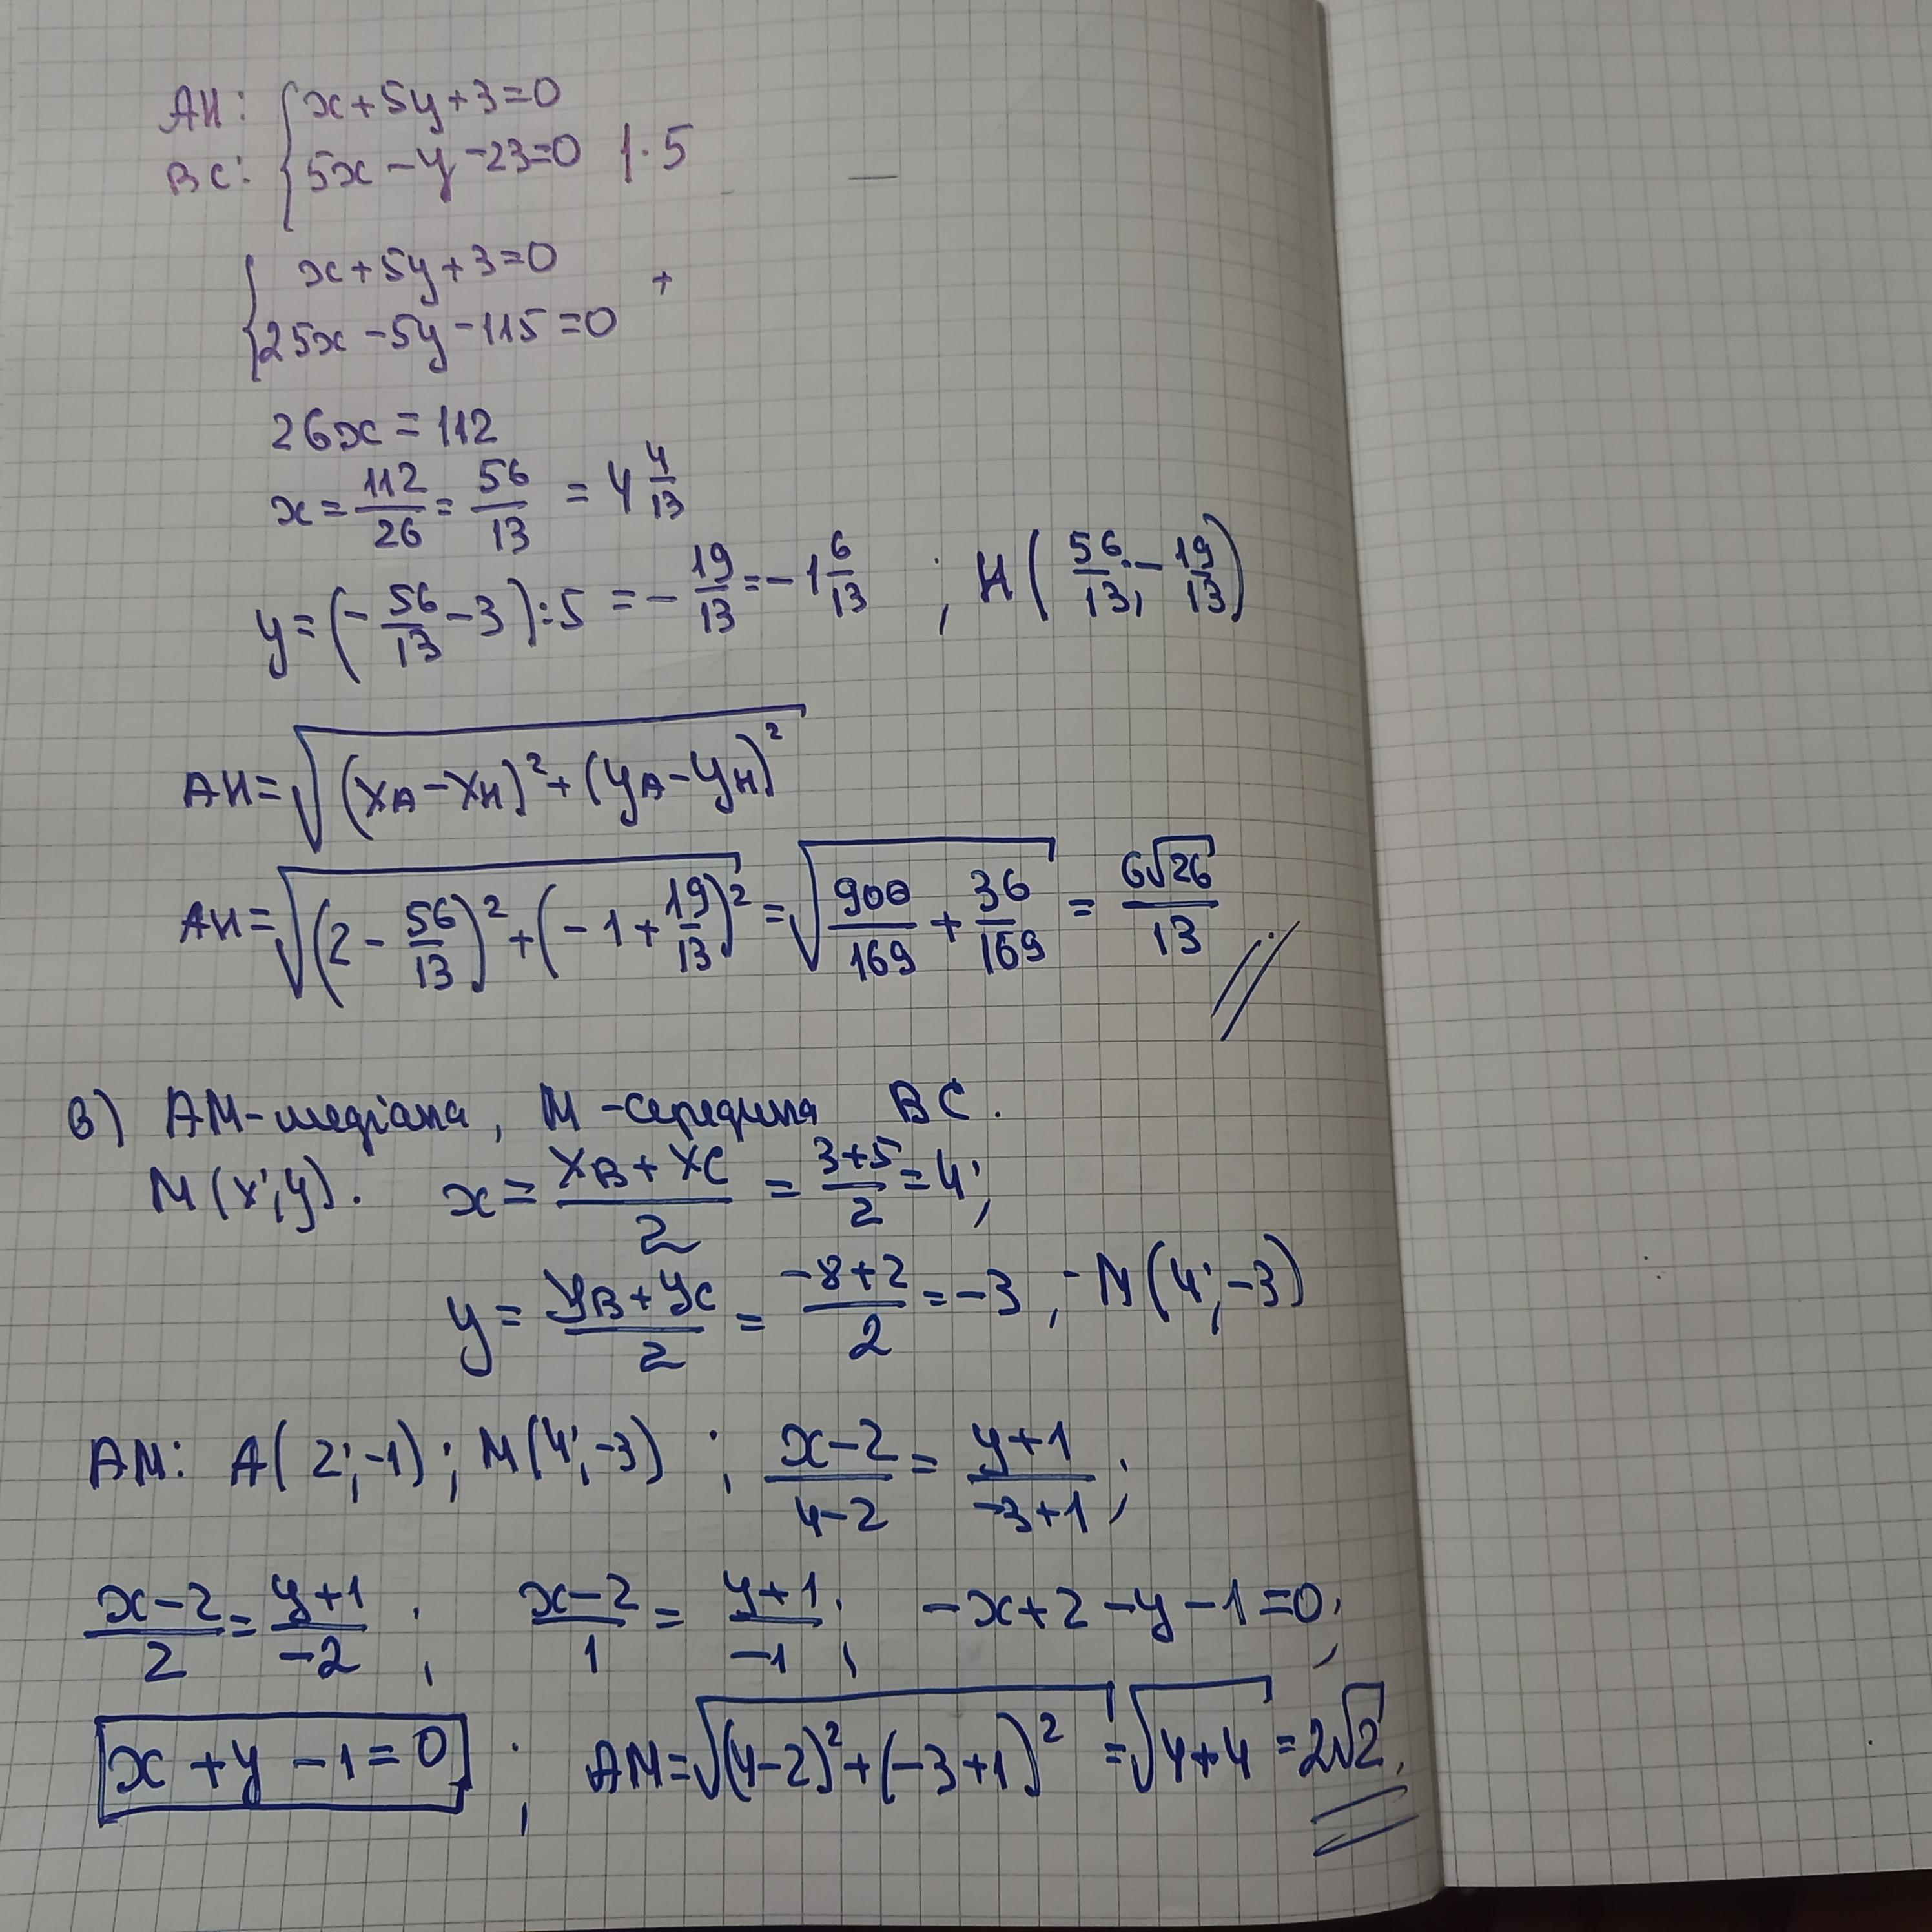 AH: { x+5y+3=0
BC: { 5x-y-23=0 |·5
{ x+5y+3=0 +
{ 25x-5y-115=0
26x=112
x = 112/26 = 56/13 = 4 4/13
y = (-56/13 - 3):5 = -19/13 = -1 6/13 ; H(56/13; -19/13)
AH = √((xA-xH)² + (yA-yH)²)
AH = √((2-56/13)² + (-1+19/13)²) = √(900/169 + 36/169) = 6√26/13
в) AM-медіана, M-середина BC.
M(x;y). x = (xB+xC)/2 = (3+5)/2 = 4;
y = (yB+yC)/2 = (-8+2)/2 = -3; - M(4;-3)
AM: A(2;-1); M(4;-3) ; (x-2)/(4-2) = (y+1)/(-3+1);
(x-2)/2 = (y+1)/-2 ; (x-2)/1 = (y+1)/-1 ; -x+2-y-1=0;
x+y-1=0 ; AM = √((4-2)² + (-3+1)²) = √(4+4) = 2√2.